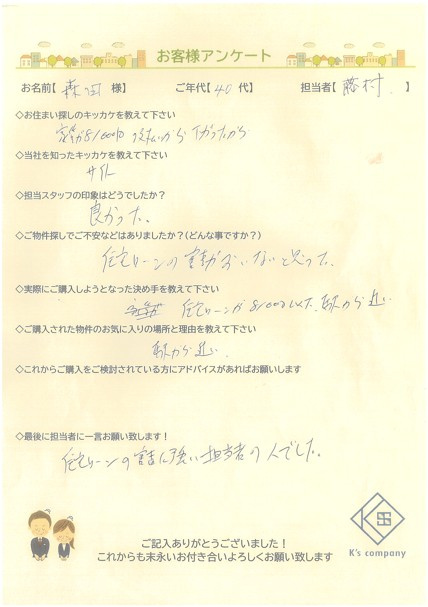 お客様アンケート
お名前【 森田 様】 ご年代【 40 代】 担当者【 藤村 . 】
◇お住まい探しのキッカケを教えて下さい
家賃が81000の
◇当社を知ったキッカケを教えて下さい
サイト
◇担当スタッフの印象はどうでしたか?
良かった。
◇ご物件探しでご不安などはありましたか?(どんな事ですか?)
住宅ローンの と思った。
◇実際にご購入しようとなった決め手を教えて下さい
住宅ローンが81000以下、駅から近い
◇ご購入された物件のお気に入りの場所と理由を教えて下さい
駅から近い
◇これからご購入をご検討されている方にアドバイスがあればお願いします
◇最後に担当者に一言お願い致します!
住宅ローンの 強い担当者の人でした。
ご記入ありがとうございました!
これからも末永いお付き合いよろしくお願い致します
K's company